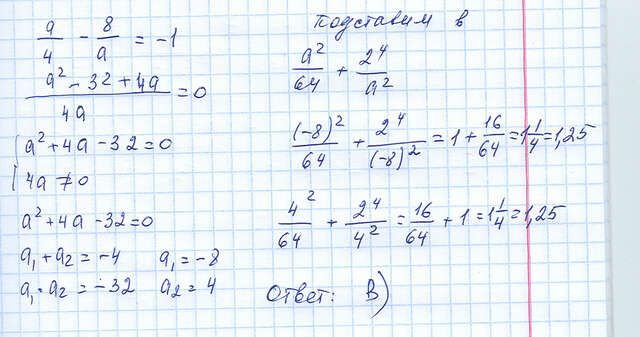 a/4 - 8/a = -1
(a² - 32 + 4a)/4a = 0
{ a² + 4a - 32 = 0
{ 4a ≠ 0
a² + 4a - 32 = 0
a₁ + a₂ = -4 a₁ = -8
a₁ · a₂ = -32 a₂ = 4
Подставим в
a²/64 + 2⁴/a²
(-8)²/64 + 2⁴/(-8)² = 1 + 16/64 = 1 1/4 = 1,25
4²/64 + 2⁴/4² = 16/64 + 1 = 1 1/4 = 1,25
Ответ: В)